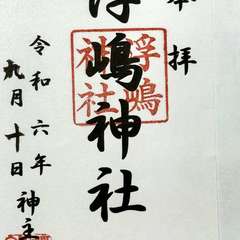 奉拝
浮嶋神社
浮嶋
神社
令和六年
九月十日
神主